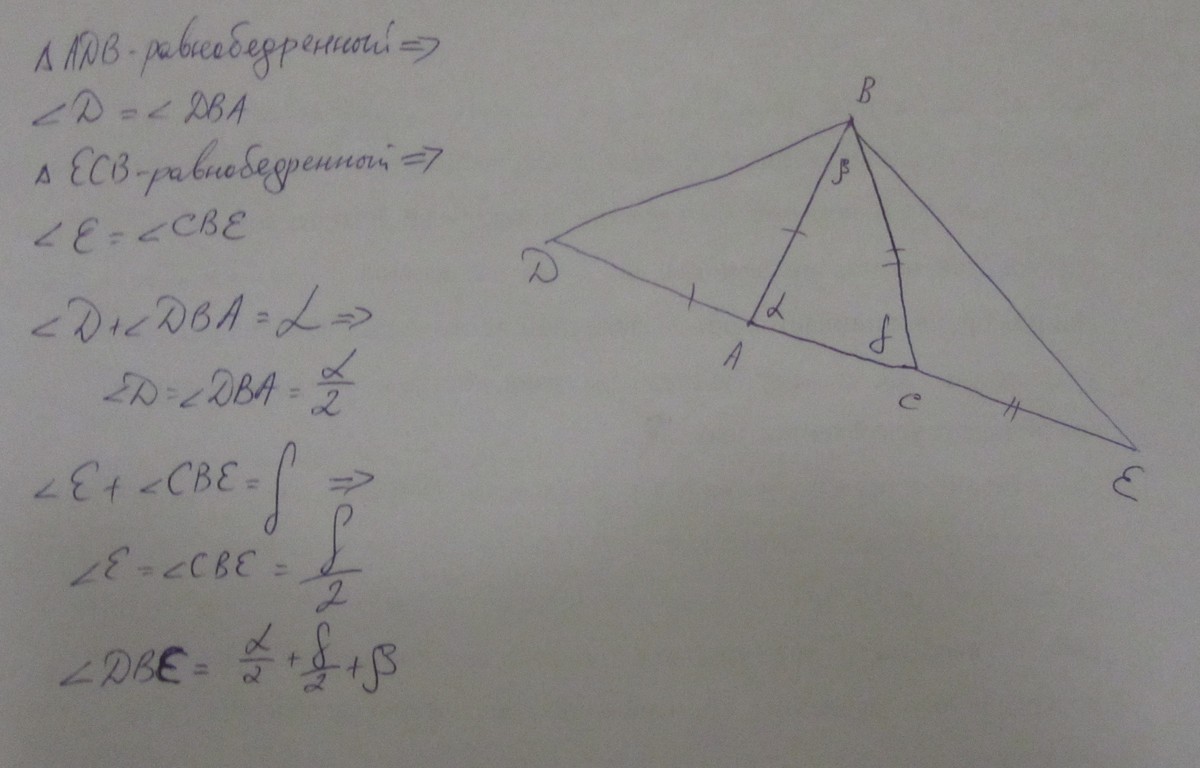 △ ADB-равнобедренный ⇒
∠D = ∠DBA
△ ECB-равнобедренный ⇒
∠E = ∠CBE
∠D + ∠DBA = α ⇒
∠D = ∠DBA = α/2
∠E + ∠CBE = γ ⇒
∠E = ∠CBE = γ/2
∠DBE = α/2 + γ/2 + β
B
β
D
α
γ
A
C
E